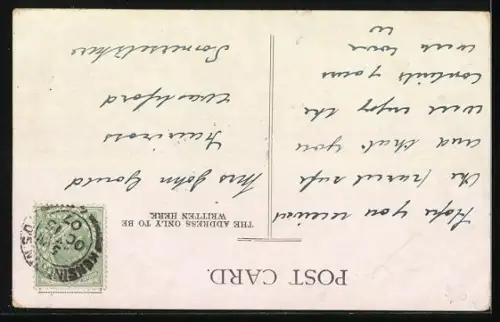 POST CARD.
THE ADDRESS ONLY TO BE
WRITTEN HERE.
Hope you received
the parcel safe
and that you
will enjoy the
contents yours
with love
Mrs John Gould
Faircross
Washford
Somersetshire
KENSINGTON
OC 15
07